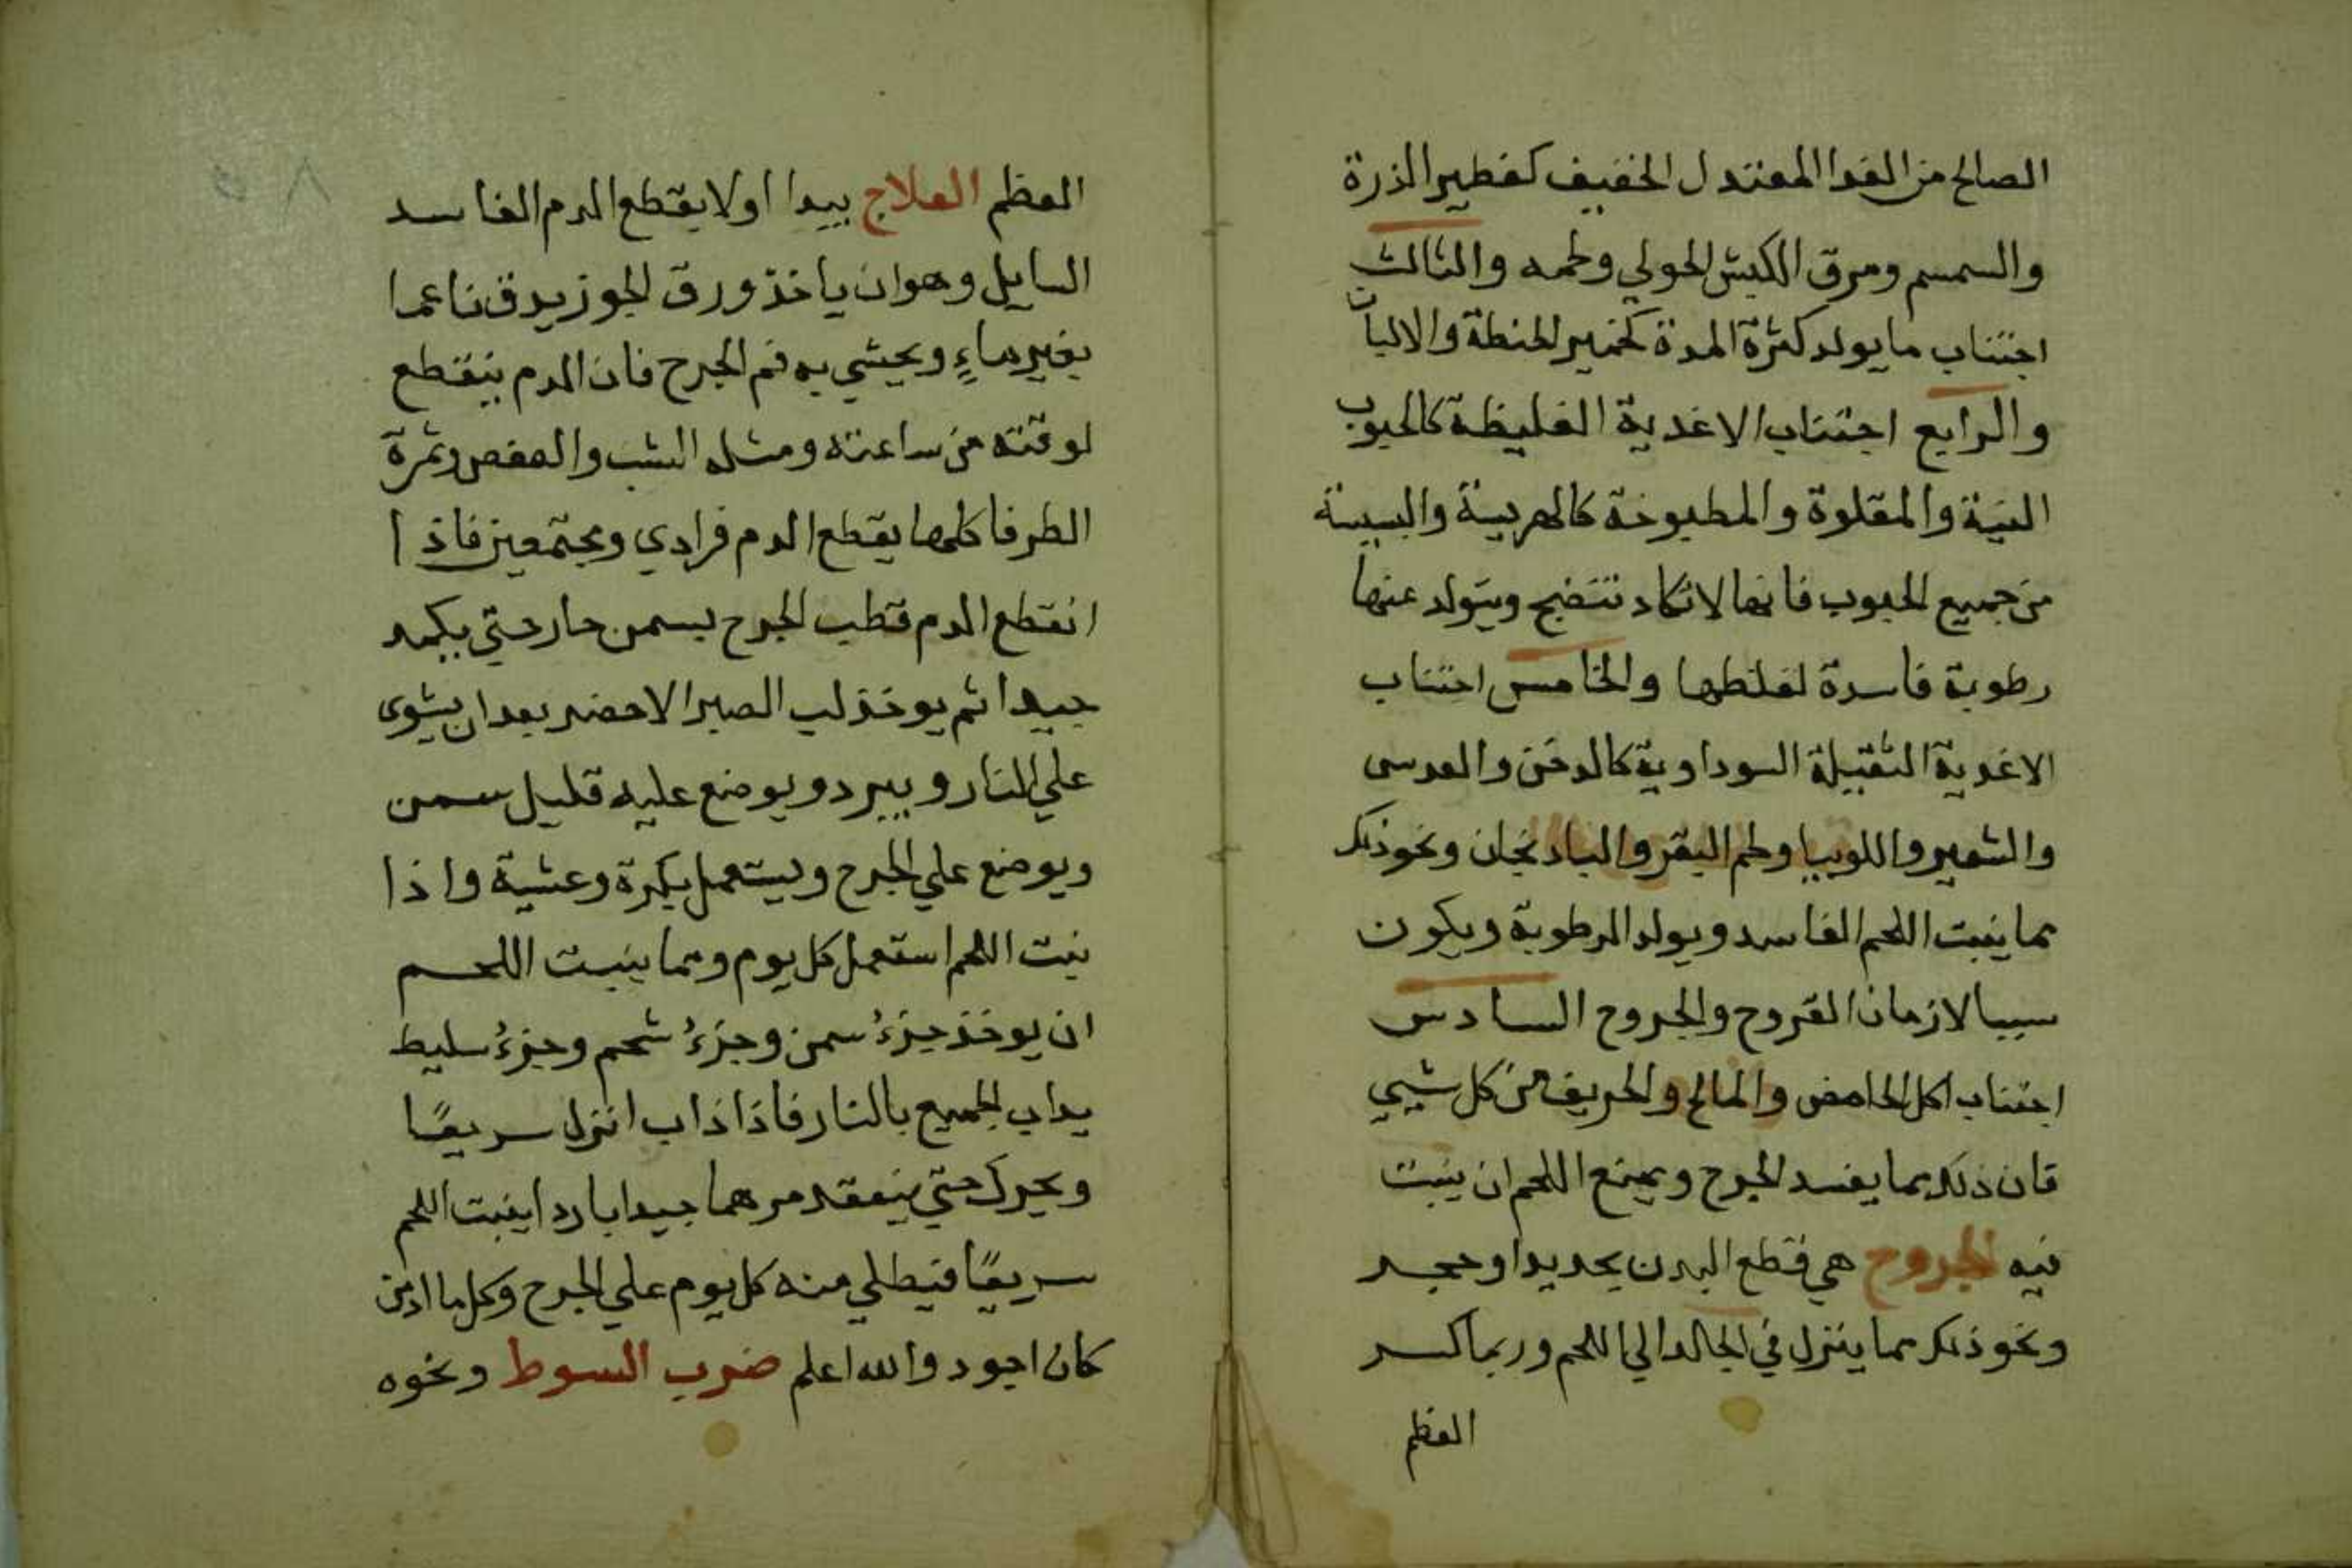 الصالح من الغدا المعتدل الخفيف كفطير الذرة
والسمسم ومرق الكبش الحولي ولحمه والثالث
اجتناب ما يولد كثرة المدة كخمير الحنطة والالبان
والرابع اجتناب الاغدية الغليظة كالحبوب
النية والمقلوة والمطبوخة كالهريسة والبسيسة
من جميع الحبوب فانها لا تكاد تنضج ويتولد عنها
رطوبة فاسدة لغلظها والخامس اجتناب
الاغدية الثقيلة السوداوية كالدخن والعدس
والشعير واللوبيا ولحم البقر والبادنجان ونحو ذلك
مما ينبت اللحم الفاسد ويولد الرطوبة ويكون
سببا لازمان القروح والجروح السادس
اجتناب اكل الحامض والمالح والحريف من كل شيي
فان ذلك مما يفسد الجرح ويمنع اللحم ان ينبت
فيه الجروح هي قطع البدن بحديد او حجر
ونحو ذلك مما ينزل في الجالد الي اللحم وربما كسر
العظم
العظم العلاج يبدا اولا بقطع الدم الفاسد
السايل وهو ان ياخذ ورق الجوز يدق ناعما
بغير ماءٍ ويحشي به فم الجرح فان الدم ينقطع
لوقته من ساعته ومثله الشب والعفص وثمرة
الطرفا كلها يقطع الدم فرادي ومجتمعين فاذا
انقطع الدم قطب الجرح بسمن حار حتي يكمد
جيدا ثم يوخذ لب الصبر الاخضر بعد ان يشوى
علي النار ويبرد ويوضع عليه قليل سمن
ويوضع علي الجرح ويستعمل بكرة وعشية واذا
نبت اللحم استعمل كل يوم ومما ينبت اللحم
ان يوخذ جزءُ سمن وجزءُ شحم وجزءُ سليط
يداب الجميع بالنار فاذا ذاب انزل سريعًا
ويحرك حتي ينعقد مرهما جيدا باردا ينبت اللحم
سريعًا فيطلي منه كل يوم علي الجرح وكل ما ادمن
كان اجود والله اعلم ضرب السوط ونحوه